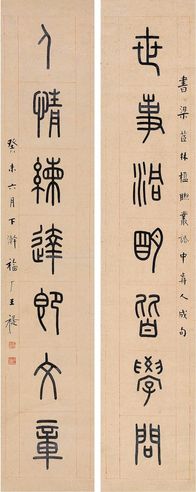 書梁茝林楹聯叢話中歬人成句
世事洞明皆學問
人情練達即文章
癸未六月下澣福厂王褆